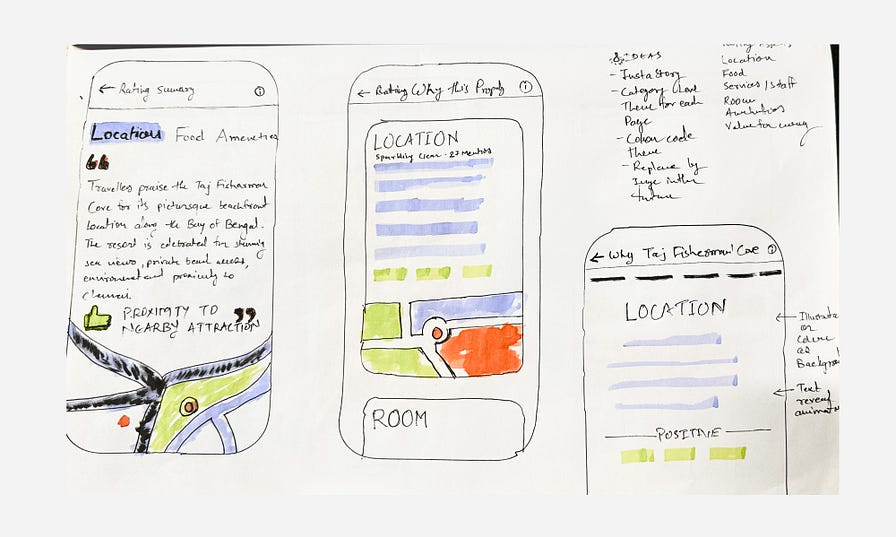 ← Rating summary ⓘ
Location Food Amenities
“
Travellers praise the Taj Fisherman
Cove for its picturesque beachfront
location along the Bay of Bengal.
The resort is celebrated for stunning
sea views, private beach access,
environment and proximity to
Chennai.
PROXIMITY TO
NEARBY ATTRACTION ”
← Rating Why this Property ⓘ
LOCATION
Sparkling Clean · 27 Mentions
ROOM
IDEAS
- Insta Story
- Category Level
Theme for each
Page
- Colour code
theme
- Replace by
Image in the
future
Location
Food
Services / Staff
Room
Amenities
Value for money
← Why Taj Fisherman' Cove ⓘ
LOCATION
POSITIVE
← Illustration
or
Colour
as
Backgrou
← Text
reveal
animat